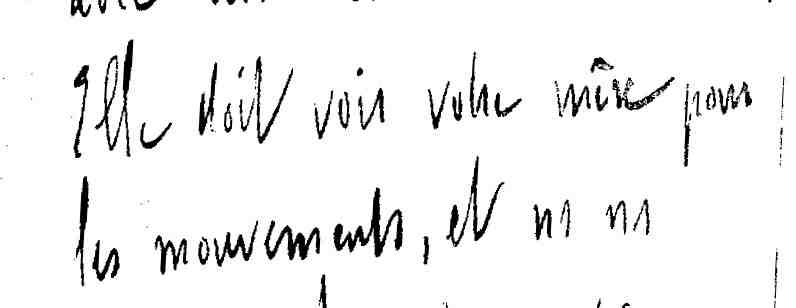 Elle doit voir votre mère pour
les mouvements, et ns ns